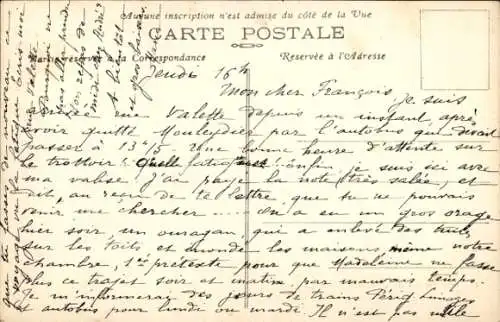 Aucune inscription n'est admise du côté de la Vue
CARTE POSTALE
Partie réservée à la Correspondance
Réservée à l'Adresse
Jeudi 16h
Mon cher François, Je suis
arrivée rue Valette depuis un instant, après
avoir quitté Mouleydier par l'autobus qui devait
passer à 13h45. Une bonne heure d'attente sur
le trottoir. Quelle fatigue! Enfin je suis ici avec
ma valise. J'ai payé la note très salée, et
dit, au reçu de ta lettre, que tu ne pouvais
venir me chercher.... On a eu un gros orage
hier soir, un ouragan qui a enlevé des tuiles
sur les toits et inondé les maisons, même notre
chambre, 1er prétexte pour que Madeleine ne fasse
plus ce trajet soir et matin par mauvais temps.
Je m'informerai des jours de trains Périg Limoges
et autobus pour lundi ou mardi. Il n'est pas utile
que tu fasses de nouveau ce
voyage
A bientôt
et gros baisers